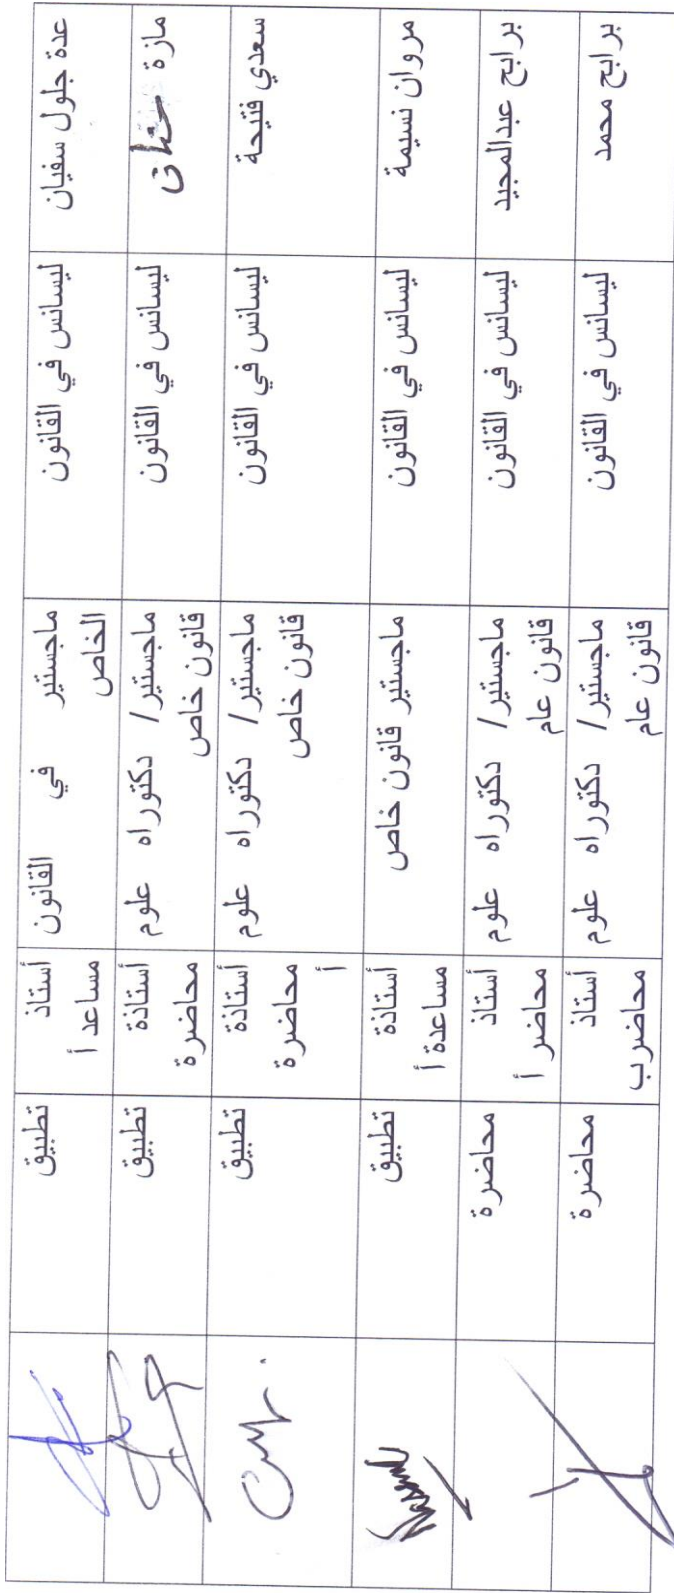 عدة جلول سفيان
ليسانس في القانون
ماجستير في القانون
الخاص
أستاذ
مساعد أ
تطبيق
مازة حنان
ليسانس في القانون
ماجستير/ دكتوراه علوم
قانون خاص
أستاذة
محاضرة
تطبيق
سعدي فتيحة
ليسانس في القانون
ماجستير/ دكتوراه علوم
قانون خاص
أستاذة
محاضرة
أ
تطبيق
مروان نسيمة
ليسانس في القانون
ماجستير قانون خاص
أستاذة
مساعدة أ
تطبيق
برابح عبدالمجيد
ليسانس في القانون
ماجستير/ دكتوراه علوم
قانون عام
أستاذ
محاضر أ
محاضرة
برابح محمد
ليسانس في القانون
ماجستير/ دكتوراه علوم
قانون عام
أستاذ
محاضر ب
محاضرة